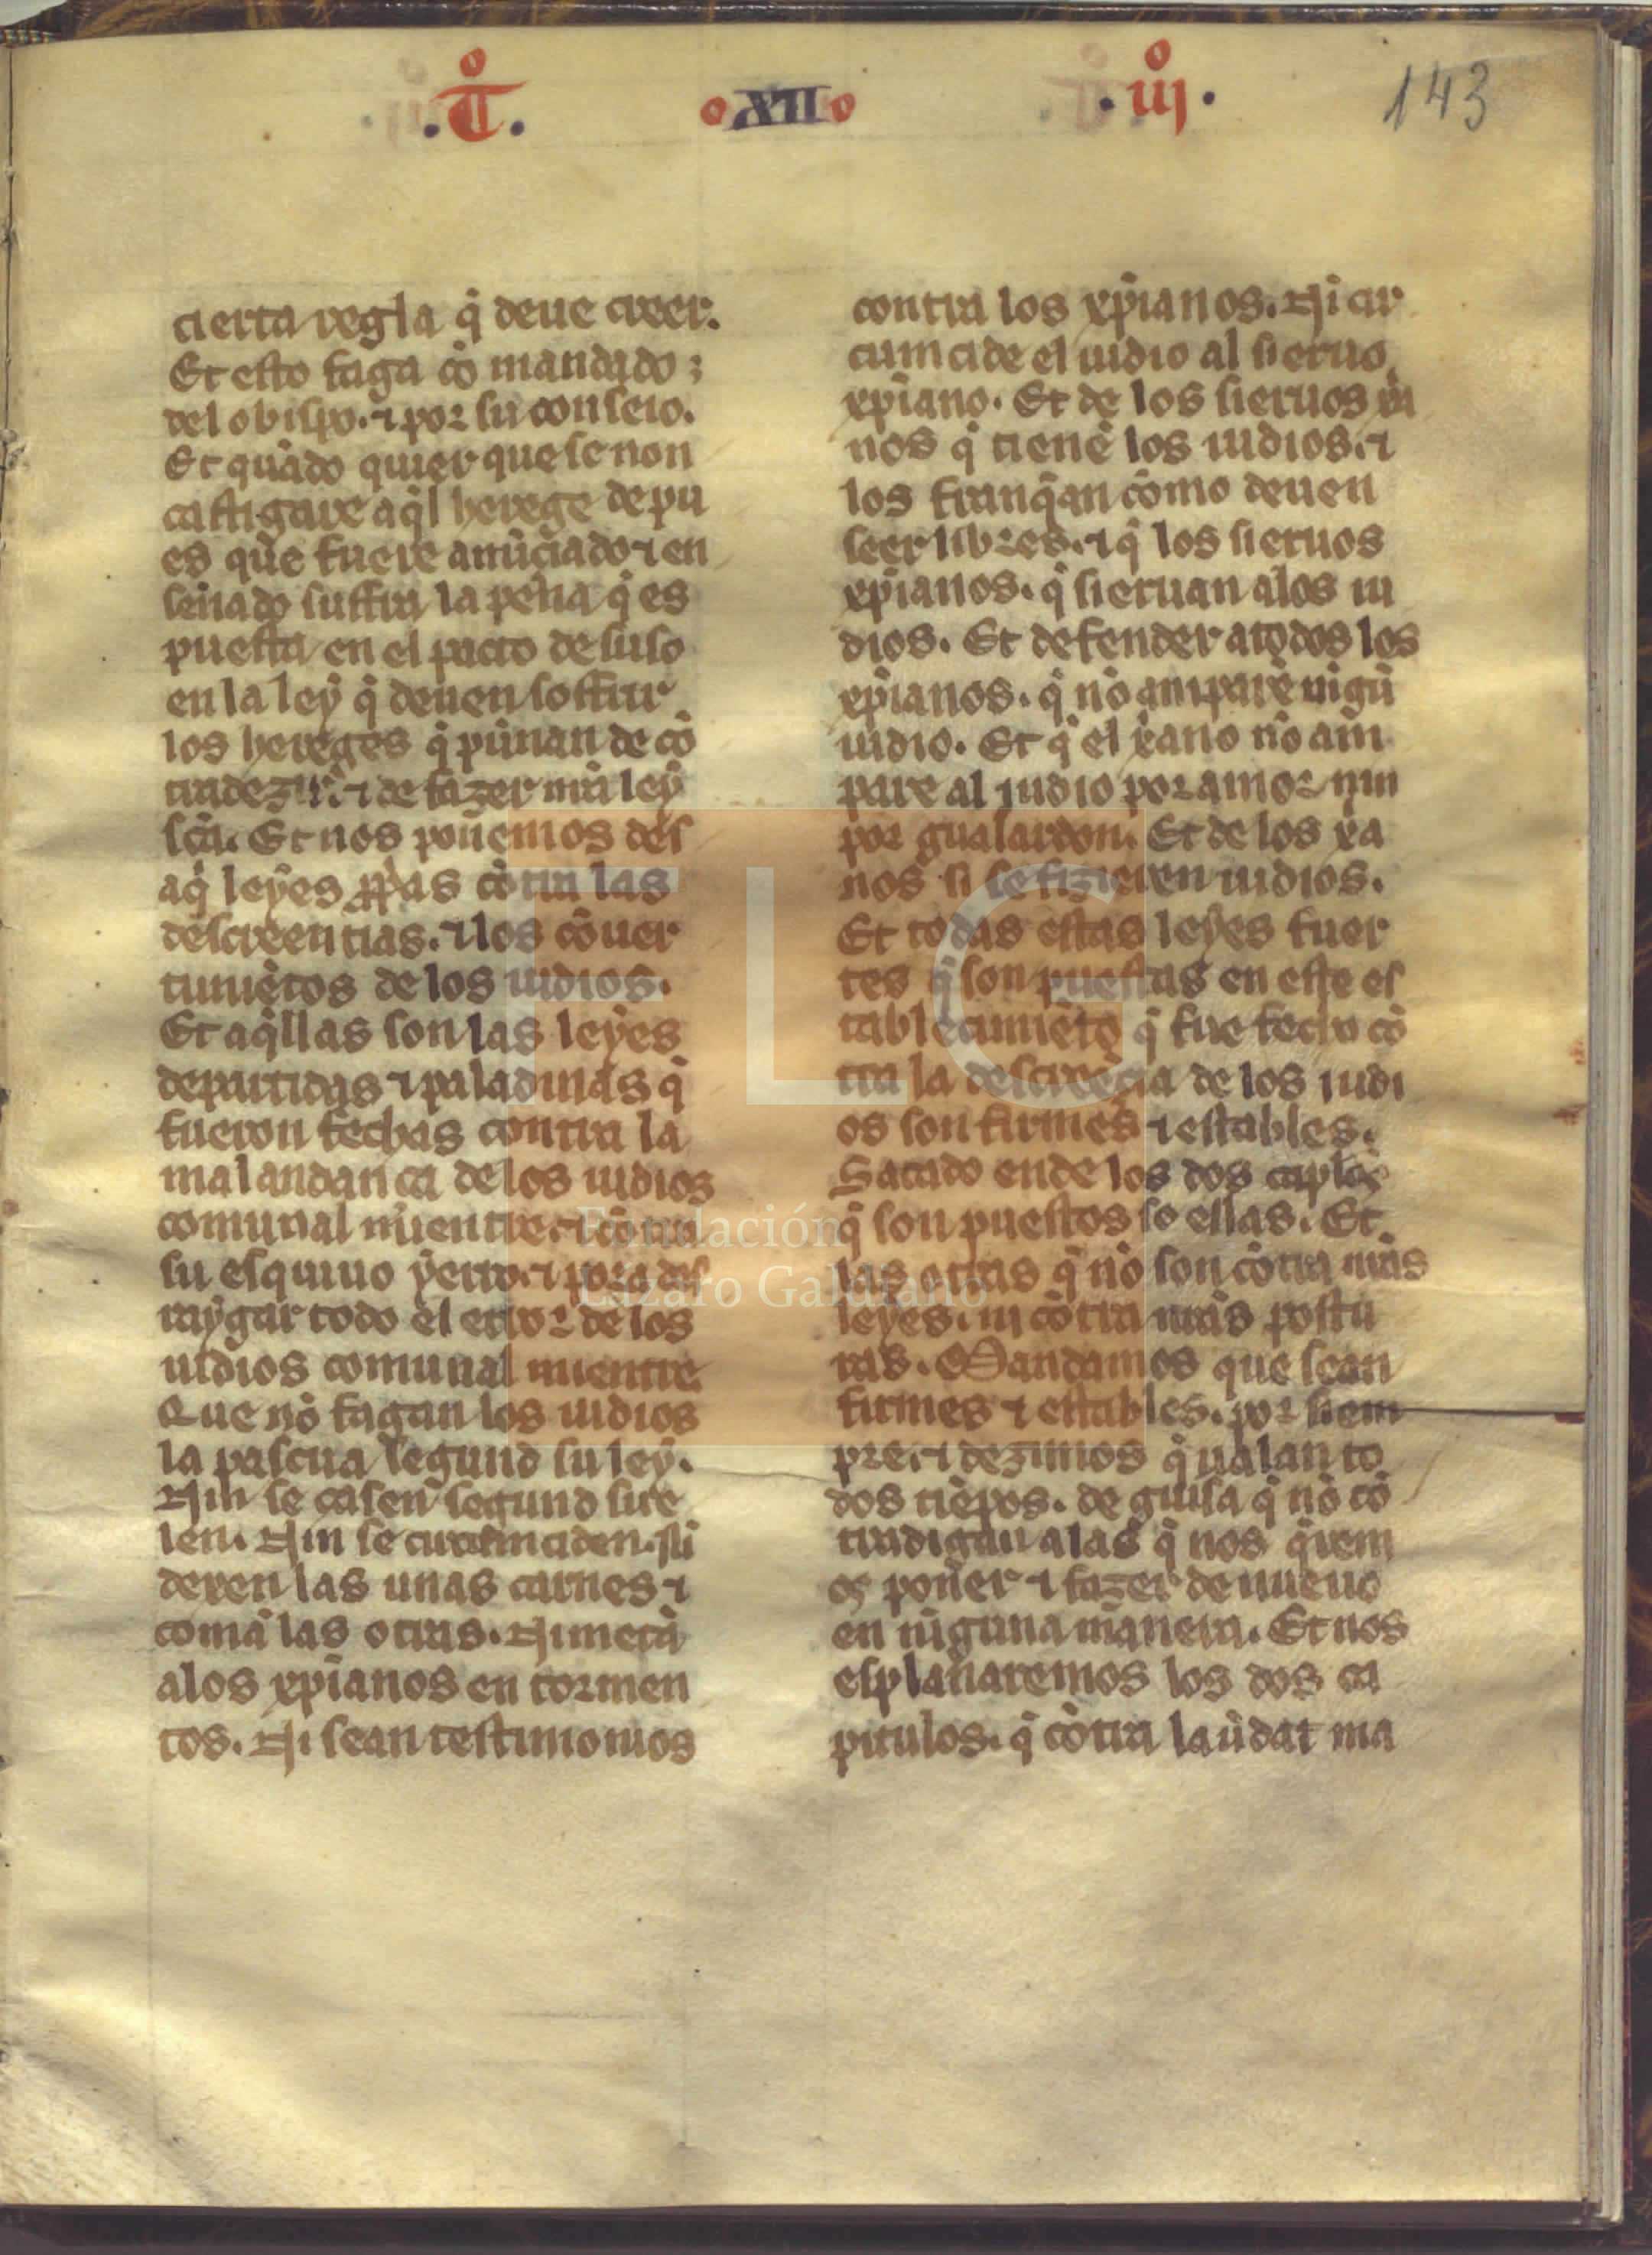 .T͞o. XII .iijo. 143
cierta regla q̇ deue creer.
Et esto faga cō mandado;
del obispo. ⁊ por su conseio.
Et quādo quier que se non
castigare aq̇l herege depu
es que fuere anūciado ⁊ en
senado suffra la pena q̇ es
puesta en el pacto de suso
en la ley q̇ deuen soffrir
los hereges q̇ punnan de cō
tradezir. ⁊ de fazer nr̄a ley
sc̄a. Et nos ponemos des
aq̇ leyes cōtra las
descreentias. ⁊ los cōuer
timiētos de los iudios.
Et aq̇llas son las leyes
departidas ⁊ paladinas q̇
fueron fechas contra la
malandança de los iudios
comunal mientre. ⁊ cōtra
su esquiuo yerro. ⁊ pora des
raygar todo el error de los
iudios comunal mientre
Que nō fagan los iudios
la pascua segund su ley.
Nin se casen segund sue
len. Nin se circumciden. ni
dexen las unas carnes ⁊
comā las otras. Ni metā
a los xp̄ianos en tormen
tos. Ni sean testimonios
contra los xp̄ianos. Ni cir
cumcide el iudio al sieruo
xp̄iano. Et de los sieruos xp̄ia
nos q̇ tienē los iudios. ⁊
los franq̇an cōmo deuen
seer libres. ⁊ q̇ los sieruos
xp̄ianos. q̇ sieruan alos iu
dios. Et defender a todos los
xp̄ianos. q̇ nō amparē nigū
iudio. Et q̇ el xāno nō am
pare al judio por amor nin
por gualardon. Et de los xā
nos si se fizieren iudios.
Et todas estas leyes fuer
tes q̇ son puestas en este es
tablecimiēto q̇ fue fecho cō
tra la descreēcia de los judi
os son firmes ⁊ estables.
Sacado ende los dos cap̄los
q̇ son puestos so ellas. Et
las otras q̇ nō son cōtra nr̄as
leyes. nj cōtra nr̄as postu
ras. Mandamos que sean
firmes ⁊ estables. por siem
pre. ⁊ dezimos q̇ ualan to
dos tiēpos. de guisa q̇ nō cō
tradigan a las q̇ nos q̇rem
os poner ⁊ fazer de nueuo
en niguna manera. Et nos
esplanaremos los dos ca
pitulos. q̇ cōtra la ūdat ma
Fundación
Lázaro Galdiano
FLG